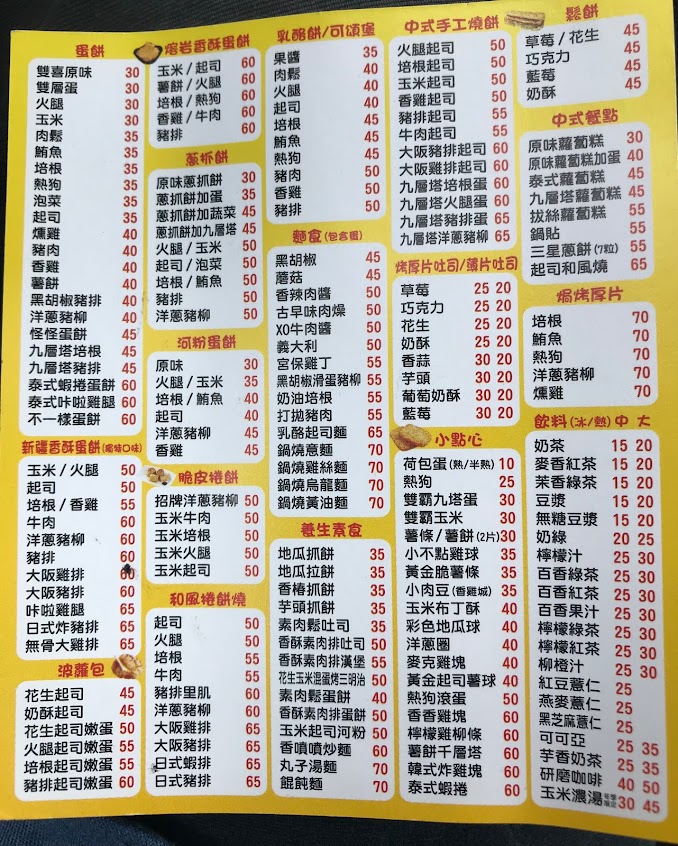 蛋餅
雙喜原味 30
雙層蛋 30
火腿 30
玉米 30
肉鬆 35
鮪魚 35
培根 35
熱狗 35
泡菜 35
起司 35
燻雞 40
豬肉 40
香雞 40
薯餅 40
黑胡椒豬排 40
洋蔥豬柳 40
怪怪蛋餅 45
九層塔培根 45
九層塔豬排 55
泰式蝦捲蛋餅 60
泰式咔啦雞腿 60
不一樣蛋餅 60
新疆香酥蛋餅(獨特口味)
玉米/火腿 50
起司 50
培根/香雞 55
牛肉 60
洋蔥豬柳 60
豬排 60
大阪雞排 60
大阪豬排 60
咔啦雞腿 65
日式炸豬排 65
無骨大雞排 65
波蘿包
花生起司 45
奶酥起司 45
花生起司嫩蛋 50
火腿起司嫩蛋 55
培根起司嫩蛋 55
豬排起司嫩蛋 60
熔岩香酥蛋餅
玉米/起司 60
薯餅/火腿 60
培根/熱狗 60
香雞/牛肉 60
豬排 60
蔥抓餅
原味蔥抓餅 30
蔥抓餅加蛋 35
蔥抓餅加蔬菜 45
蔥抓餅加九層塔 45
火腿/玉米 50
起司/泡菜 50
培根/鮪魚 50
豬排 50
洋蔥豬柳 50
河粉蛋餅
原味 30
火腿/玉米 35
培根/鮪魚 40
起司 40
洋蔥豬柳 45
香雞 45
脆皮捲餅
招牌洋蔥豬柳 50
玉米牛肉 50
玉米培根 50
玉米火腿 50
玉米起司 50
和風捲餅燒
起司 50
火腿 50
培根 55
牛肉 55
豬排里肌 60
洋蔥豬柳 60
大阪雞排 65
大阪豬排 65
日式蝦排 65
日式豬排 65
乳酪餅/可頌堡
果醬 35
肉鬆 40
火腿 40
起司 40
培根 45
鮪魚 45
熱狗 45
豬肉 50
香雞 50
豬排 50
麵食(包含蛋)
黑胡椒 45
蘑菇 45
香辣肉醬 50
古早味肉燥 50
XO牛肉醬 50
義大利 50
宮保雞丁 55
黑胡椒滑蛋豬柳 55
奶油培根 55
打拋豬肉 55
乳酪起司麵 65
鍋燒意麵 70
鍋燒雞絲麵 70
鍋燒烏龍麵 70
鍋燒黃油麵 70
養生素食
地瓜抓餅 35
地瓜拉餅 35
香椿抓餅 35
芋頭抓餅 35
素肉鬆吐司 35
香酥素肉排吐司 50
香酥素肉排漢堡 55
花生玉米混蛋烤三明治 50
素肉鬆蛋餅 40
香酥素肉排蛋餅 50
玉米起司河粉 50
香噴噴炒麵 60
丸子湯麵 70
餛飩麵 70
中式手工燒餅
火腿起司 50
培根起司 50
玉米起司 50
香雞起司 50
豬排起司 55
牛肉起司 55
大阪豬排起司 60
大阪雞排起司 60
九層塔培根蛋 60
九層塔火腿蛋 60
九層塔豬排蛋 60
九層塔洋蔥豬柳 65
烤厚片吐司/薄片吐司
草莓 25 20
巧克力 25 20
花生 25 20
奶酥 25 20
香蒜 30 20
芋頭 30 20
葡萄奶酥 30 20
藍莓 30 20
小點心
荷包蛋(熟/半熟) 10
熱狗 25
雙霸九塔蛋 30
雙霸玉米 30
薯條/薯餅(2片) 30
小不點雞球 35
黃金脆薯條 35
小肉豆(香雞城) 35
玉米布丁酥 40
彩色地瓜球 40
洋蔥圈 40
麥克雞塊 40
黃金起司薯球 40
熱狗滾蛋 50
香香雞塊 60
檸檬雞柳條 60
薯餅千層塔 60
韓式炸雞塊 60
泰式蝦捲 60
鬆餅
草莓/花生 45
巧克力 45
藍莓 45
奶酥 45
中式餐點
原味蘿蔔糕 30
原味蘿蔔糕加蛋 40
泰式蘿蔔糕 45
九層塔蘿蔔糕 45
拔絲蘿蔔糕 55
鍋貼 55
三星蔥餅(7粒) 55
起司和風燒 65
焗烤厚片
培根 70
鮪魚 70
熱狗 70
洋蔥豬柳 70
燻雞 70
飲料(冰/熱) 中 大
奶茶 15 20
麥香紅茶 15 20
茉香綠茶 15 20
豆漿 15 20
無糖豆漿 15 20
奶綠 20 25
檸檬汁 25 30
百香綠茶 25 30
百香紅茶 25 30
百香果汁 25 30
檸檬綠茶 25 30
檸檬紅茶 25 30
柳橙汁 25 30
紅豆薏仁 25
燕麥薏仁 25
黑芝麻薏仁 25
可可亞 25 35
芋香奶茶 25 35
研磨咖啡 40 50
玉米濃湯 30 45